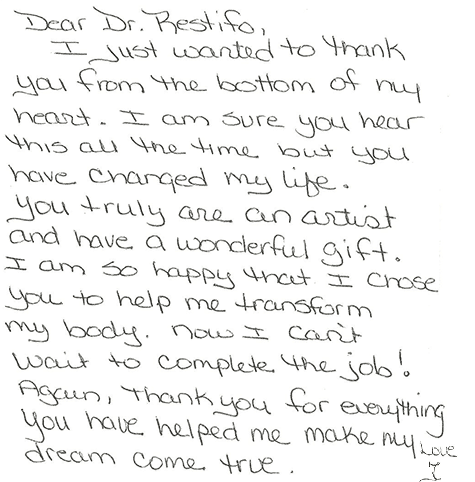 Dear Dr. Restifo,
I just wanted to thank
you from the bottom of my
heart. I am sure you hear
this all the time but you
have changed my life.
You truly are an artist
and have a wonderful gift.
I am so happy that I chose
you to help me transform
my body. Now I can't
wait to complete the job!
Again, thank you for everything
you have helped me make my
dream come true.
Love
J